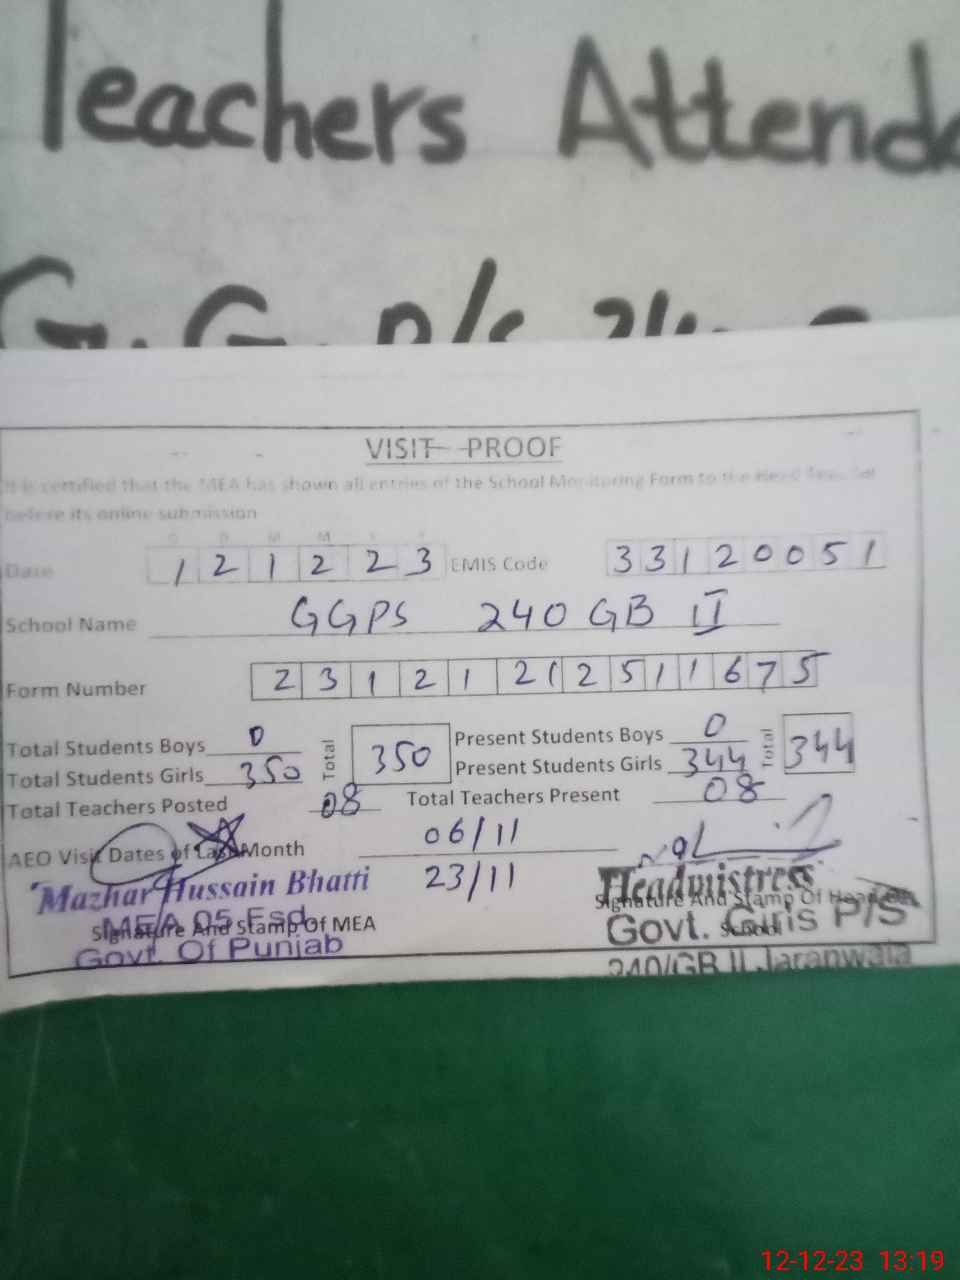 Teachers Attenda
G. G. P/S 24
VISIT PROOF
It is certified that the MEA has shown all entries of the School Monitoring Form to the Head Teacher
before its online submission
D D M M Y Y
Date 1 2 1 2 2 3 EMIS Code 3 3 1 2 0 0 5 1
School Name GGPS 240 GB II
Form Number 2 3 1 2 1 2 1 2 5 1 1 6 7 5
Total Students Boys 0 Total 350 Present Students Boys 0 Total 344
Total Students Girls 350 Present Students Girls 344
Total Teachers Posted 08 Total Teachers Present 08
AEO Visit Dates of Last Month 06/11
23/11
Mazhar Hussain Bhatti
MEA 05 Fsd.
Signature And Stamp Of MEA
Govt. Of Punjab
Headmistress
Signature And Stamp Of Head Of
School
Govt. Girls P/S
240/GB II Jaranwala
12-12-23 13:19